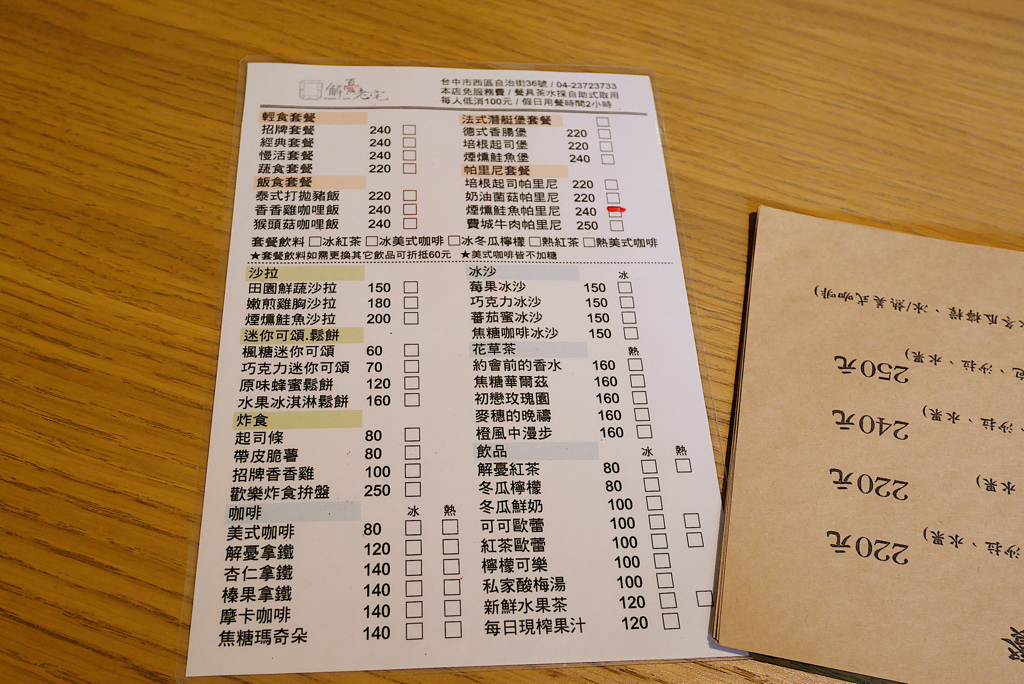 解憂老宅
台中市西區自治街36號 / 04-23723733
本店免服務費 / 餐具茶水採自助式取用
每人低消100元 / 假日用餐時間2小時
輕食套餐
招牌套餐 240
經典套餐 240
慢活套餐 240
蔬食套餐 220
飯食套餐
泰式打拋豬飯 220
香香雞咖哩飯 240
猴頭菇咖哩飯 240
法式潛艇堡套餐
德式香腸堡 220
培根起司堡 220
煙燻鮭魚堡 240
帕里尼套餐
培根起司帕里尼 220
奶油菌菇帕里尼 220
煙燻鮭魚帕里尼 240
費城牛肉帕里尼 250
套餐飲料 □冰紅茶 □冰美式咖啡 □冰冬瓜檸檬 □熱紅茶 □熱美式咖啡
★套餐飲料如需更換其它飲品可折抵60元 ★美式咖啡皆不加糖
沙拉
田園鮮蔬沙拉 150
嫩煎雞胸沙拉 180
煙燻鮭魚沙拉 200
迷你可頌.鬆餅
楓糖迷你可頌 60
巧克力迷你可頌 70
原味蜂蜜鬆餅 120
水果冰淇淋鬆餅 160
炸食
起司條 80
帶皮脆薯 80
招牌香香雞 100
歡樂炸食拚盤 250
咖啡 冰 熱
美式咖啡 80
解憂拿鐵 120
杏仁拿鐵 140
榛果拿鐵 140
摩卡咖啡 140
焦糖瑪奇朵 140
冰沙 冰
莓果冰沙 150
巧克力冰沙 150
蕃茄蜜冰沙 150
焦糖咖啡冰沙 150
花草茶 熱
約會前的香水 160
焦糖華爾茲 160
初戀玫瑰園 160
麥穗的晚禱 160
橙風中漫步 160
飲品 冰 熱
解憂紅茶 80
冬瓜檸檬 80
冬瓜鮮奶 100
可可歐蕾 100
紅茶歐蕾 100
檸檬可樂 100
私家酸梅湯 100
新鮮水果茶 120
每日現榨果汁 120
沙拉、水果)
220元
、水果)
220元
、沙拉、水果)
240元
、沙拉、水果)
250元
冬瓜檸檬、冰/熱美式咖啡)